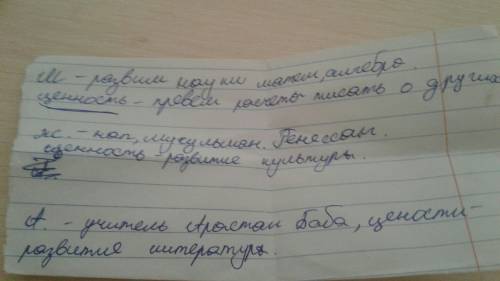 М - развит науки матем, алгебра.
ценность - провёл расчеты писать о других
жс. - нап, мусульман. Генессанс.
ценность - развитие культуры.
А. - учитель Арастан Баба, цености -
развитие литературы.